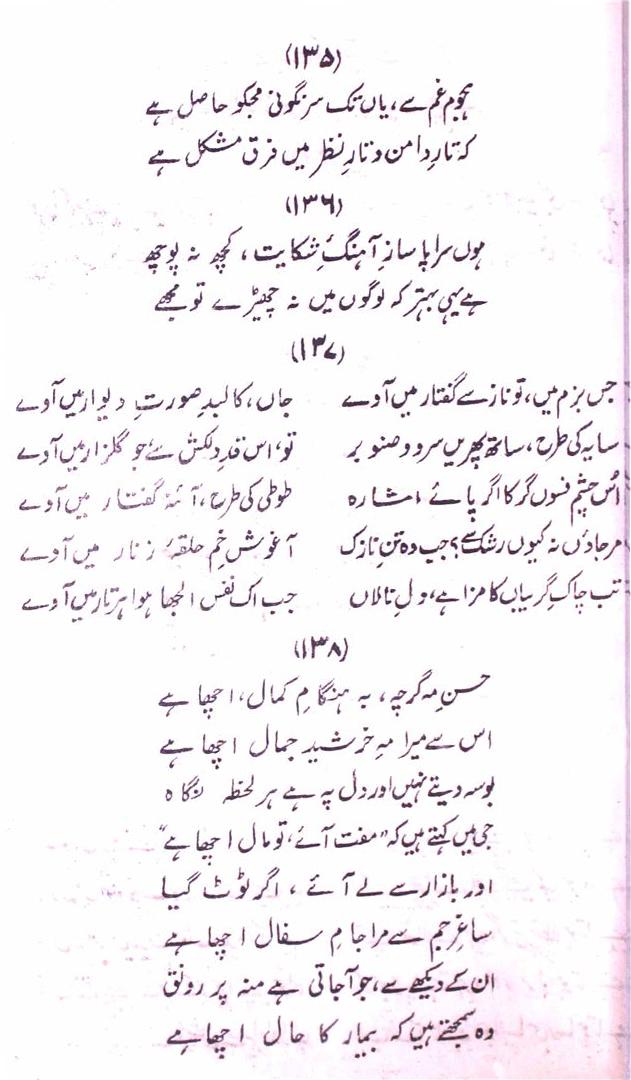 (۱۳۵)
ہجومِ غم سے، یاں تک سرنگونی مجکو حاصل ہے
کہ تارِ دامن و تارِ نظر میں فرق مشکل ہے
(۱۳۶)
ہوں سراپا سازِ آہنگِ شکایت، کچھ نہ پوچھ
ہے یہی بہتر کہ لوگوں میں نہ چھیڑے تو مجھے
(۱۳۷)
جس بزم میں، تو ناز سے گفتار میں آوے جاں، کالبدِ صورتِ دیوار میں آوے
سایہ کی طرح، ساتھ پھریں سرو و صنوبر تو، اس قدِ دلکش سے جو گلزار میں آوے
اُس چشمِ فسوں گر کا اگر پائے اشارہ طوطی کی طرح، آئنہ گفتار میں آوے
مرجاؤں نہ کیوں رشک سے؟ جب وہ تنِ نازک آغوشِ خمِ حلقۂ زنار میں آوے
تب چاکِ گریباں کا مزا ہے، دلِ نالاں جب اک نفس الجھا ہوا ہر تار میں آوے
(۱۳۸)
حسنِ مہ گرچہ، بہ ہنگامِ کمال، اچھا ہے
اس سے میرا مہِ خرشید جمال اچھا ہے
بوسہ دیتے نہیں اور دل پہ ہے ہر لحظہ نگاہ
جی میں کہتے ہیں کہ "مفت آئے، تو مال اچھا ہے"
اور بازار سے لے آئے، اگر ٹوٹ گیا
ساغرِ جم سے مرا جامِ سفال اچھا ہے
ان کے دیکھے سے، جو آجاتی ہے منہ پر رونق
وہ سمجھتے ہیں کہ بیمار کا حال اچھا ہے